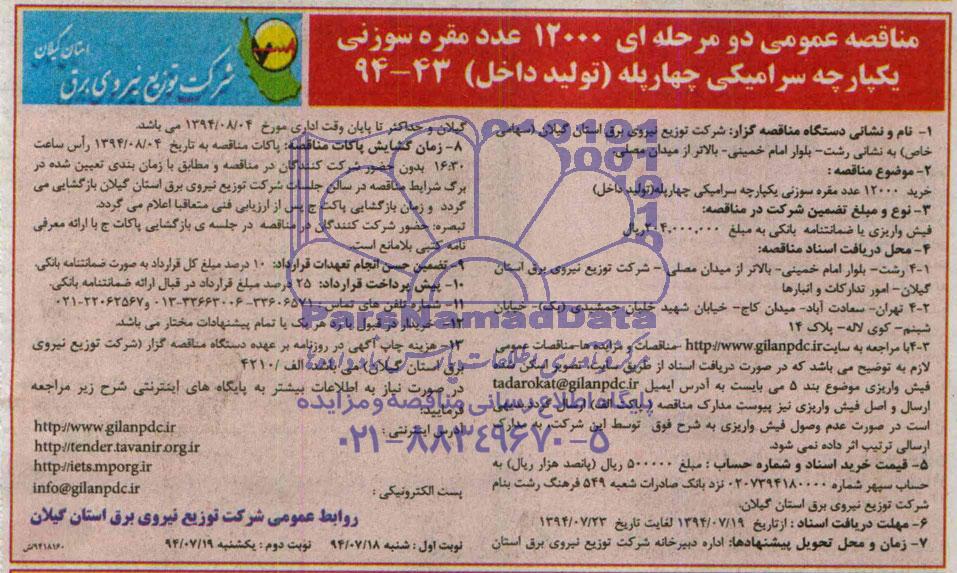 مناقصه عمومی دو مرحله ای ۱۲۰۰۰ عدد مقره سوزنی
یکپارچه سرامیکی چهارپله (تولید داخل) ۴۳-۹۴
استان گیلان
شرکت توزیع نیروی برق
۱- نام و نشانی دستگاه مناقصه گزار: شرکت توزیع نیروی برق استان گیلان (سهامی
خاص) به نشانی رشت- بلوار امام خمینی- بالاتر از میدان مصلی.
۲-موضوع مناقصه:
خرید ۱۲۰۰۰ عدد مقره سوزنی یکپارچه سرامیکی چهارپله(تولید داخل)
۳- نوع و مبلغ تضمین شرکت در مناقصه:
فیش واریزی یا ضمانتنامه بانکی به مبلغ ۲۰۴.۰۰۰.۰۰۰ریال
۴- محل دریافت اسناد مناقصه:
۴-۱ رشت- بلوار امام خمینی- بالاتر از میدان مصلی - شرکت توزیع نیروی برق استان
گیلان- امور تدارکات و انبارها
۴-۲ تهران- سعادت آباد- میدان کاج- خیابان شهید خلیان جمشیدی (یکم)- خیابان
شبنم- کوی لاله- پلاک ۱۴
۴-۳با مراجعه به سایتhttp://www.gilanpdc.ir -مناقصات و مزایده ها-مناقصات عمومی
لازم به توضیح می باشد که در صورت دریافت اسناد از طریق سایت، تصویر اسکن شده
فیش واریزی موضوع بند ۵ می بایست به آدرس ایمیل tadarokat@gilanpdc.ir
ارسال و اصل فیش واریزی نیز پیوست مدارک مناقصه (پاکت الف) ارسال گردد.بدیهی
است در صورت عدم وصول فیش واریزی به شرح فوق توسط این شرکت، به مدارک
ارسالی ترتیب اثر داده نمی شود.
۵- قیمت خرید اسناد و شماره حساب : مبلغ ۵۰۰۰۰۰ ریال (پانصد هزار ریال) به
حساب سپهر شماره ۰۲۰۷۳۹۴۱۸۰۰۰۰ نزد بانک صادرات شعبه ۵۴۹ فرهنگ رشت بنام
شرکت توزیع نیروی برق استان گیلان.
۶- مهلت دریافت اسناد : ازتاریخ ۱۳۹۴/۰۷/۱۹ لغایت تاریخ ۱۳۹۴/۰۷/۲۳
۷- زمان و محل تحویل پیشنهادها: اداره دبیرخانه شرکت توزیع نیروی برق استان
گیلان و حداکثر تا پایان وقت اداری مورخ ۱۳۹۴/۰۸/۰۴ می باشد.
۸- زمان گشایش پاکات مناقصه: پاکات مناقصه به تاریخ ۱۳۹۴/۰۸/۰۴ رأس ساعت
۱۶:۳۰ بدون حضور شرکت کنندگان در مناقصه و مطابق با زمان بندی تعیین شده در
برگ شرایط مناقصه در سالن جلسات شرکت توزیع نیروی برق استان گیلان بازگشایی می
گردد و زمان بازگشایی پاکت ج پس از ارزیابی فنی متعاقبا اعلام می گردد.
تبصره: حضور شرکت کنندگان در مناقصه در جلسه ی بازگشایی پاکات ج با ارائه معرفی
نامه کتبی بلامانع است.
۹- تضمین حسن انجام تعهدات قرارداد: ۱۰ درصد مبلغ کل قرارداد به صورت ضمانتنامه بانکی.
۱۰- پیش پرداخت قرارداد: ۲۵ درصد مبلغ قرارداد در قبال ارائه ضمانتنامه بانکی.
۱۱- شماره تلفن های تماس : ۳۳۶۰۶۵۷۱- ۳۳۶۶۳۰۰۶-۰۱۳ و۲۲۰۶۲۵۶۷-۰۲۱
۱۲- خریدار در قبول یا رد هر یک یا تمام پیشنهادات مختار می باشد.
۱۳- هزینه چاپ آگهی در روزنامه بر عهده دستگاه مناقصه گزار (شرکت توزیع نیروی
برق استان گیلان) می باشد. الف /۴۲۱۰
در صورت نیاز به اطلاعات بیشتر به پایگاه های اینترنتی شرح زیر مراجعه
فرمایید:
آدرس اینترنتی : http://www.gilanpdc.ir
http://tender.tavanir.org.ir
http://iets.mporg.ir
پست الکترونیکی : info@gilanpdc.ir
روابط عمومی شرکت توزیع نیروی برق استان گیلان
نوبت اول: شنبه ۹۴/۰۷/۱۸ نوبت دوم : یکشنبه ۹۴/۰۷/۱۹
۹۴۱۸۱۶۰/ش
ParsNamadData
مرکز فرآوری اطلاعات پارس نماد داده ها
پایگاه اطلاع رسانی مناقصه و مزایده
۰۲۱-۸۸۳۴۹۶۷۰-۵